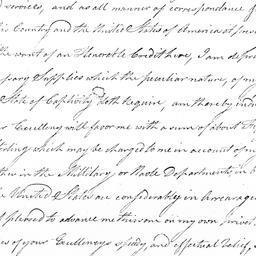 services, and as all manner of correspondance f
is Country and the United States of America at pres
the want of an Honorable Conditions, I am depri
sary Supplies which the peculiar nature, of m
State of Captivity doth require, am thereby indu
r Excellency will favor me with a sum of about
erling which may be charged to me in account of m
ther in the Military or Naval Departments, in
e United States are considerably in arrearages
pleased to advance me this on my own private
es of your Excellencys speedy and effectual relief,